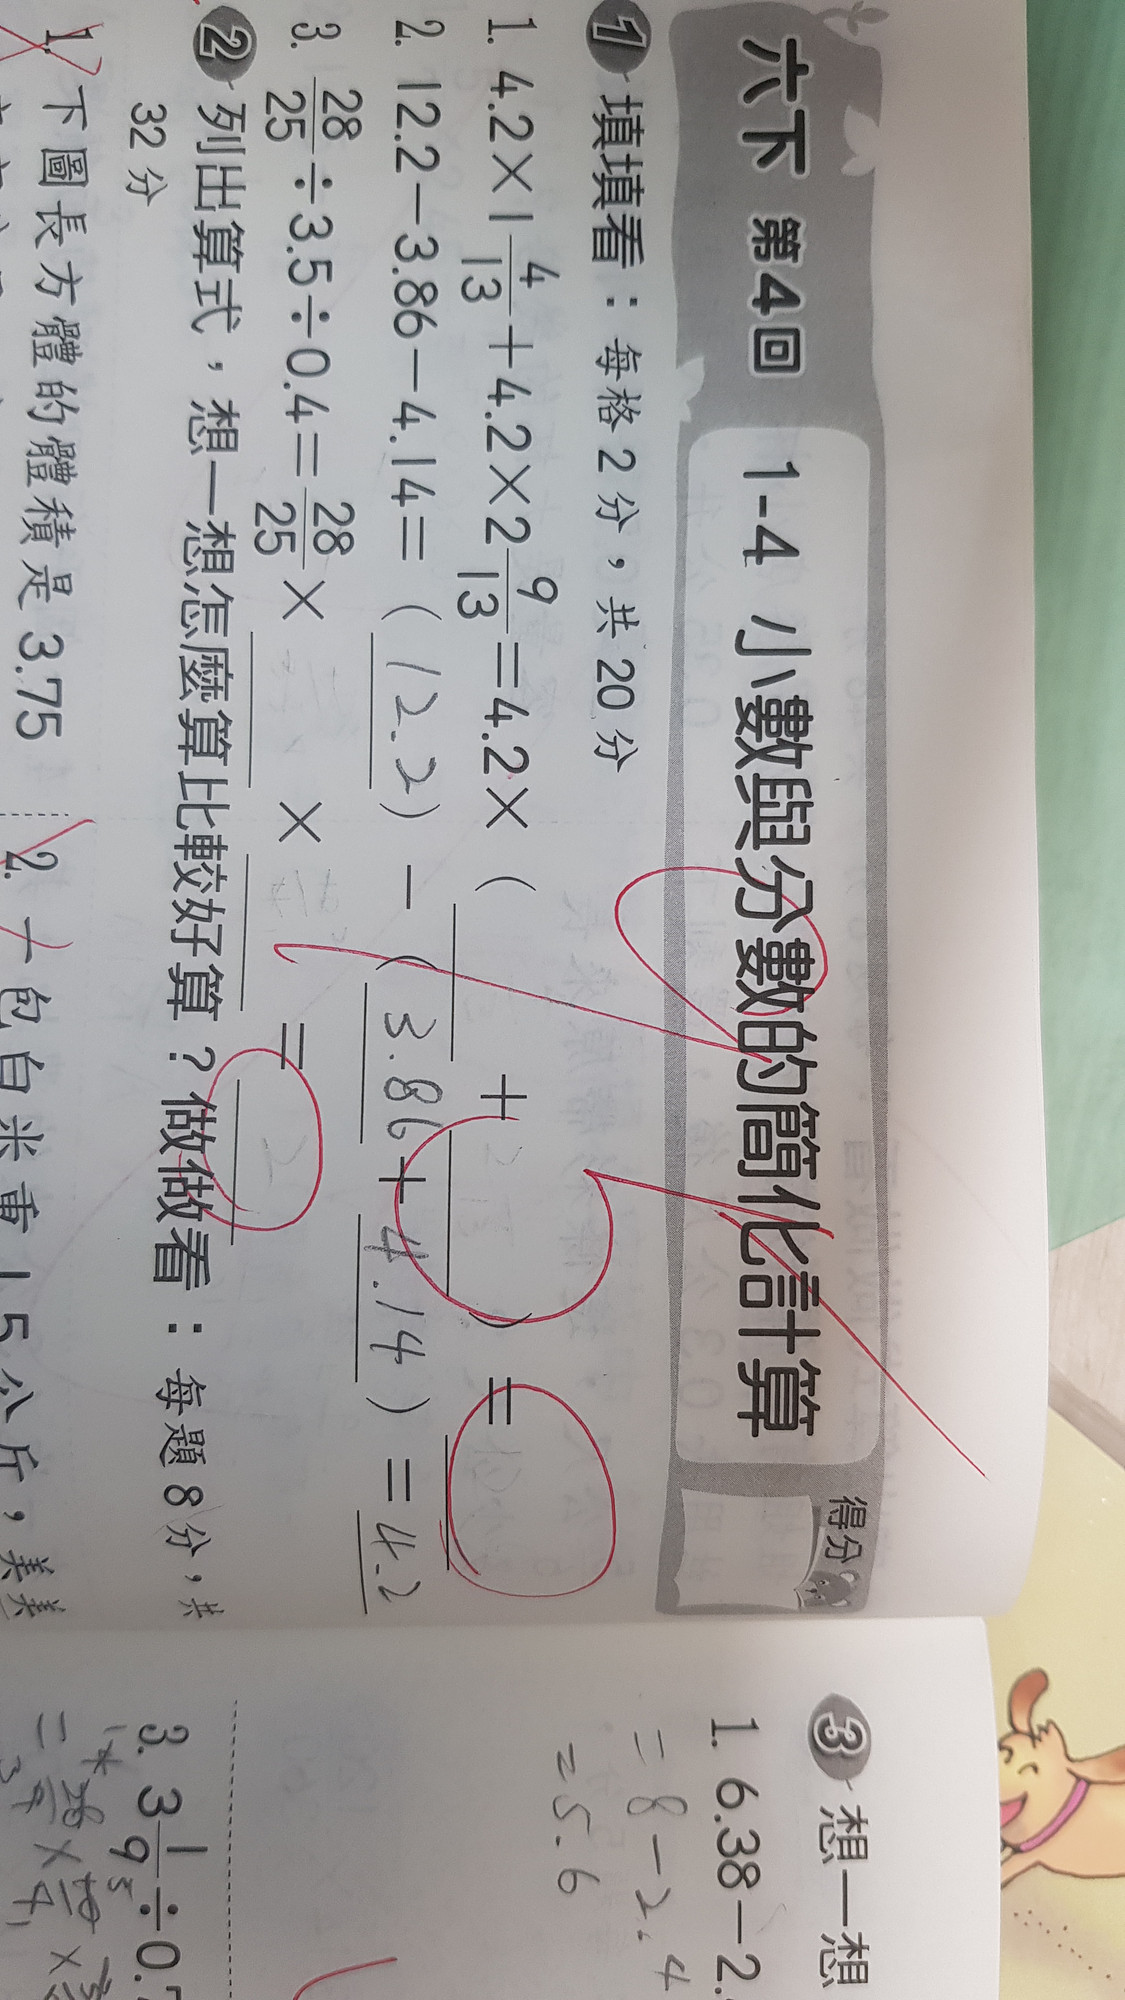 六下 第4回 1-4 小數與分數的簡化計算 得分
1 填填看：每格2分，共20分
1. 4.2×1 4/13 + 4.2×2 9/13 = 4.2×( + ) =
2. 12.2-3.86-4.14= (12.2) - (3.86+4.14) = 4.2
3. 28/25 ÷3.5÷0.4= 28/25 × × = 2
2 列出算式，想一想怎麼算比較好算？做做看：每題8分，共
32分
1. 下圖長方體的體積是3.75
2. 十包白米重1.5公斤，美美
3 想一想
1. 6.38-2.
=8-2.4
=5.6
3. 3 1/9 ÷0.7